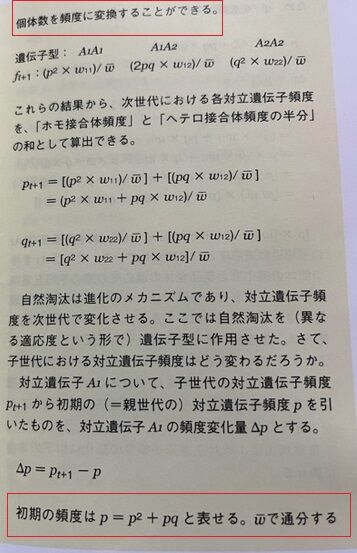 個体数を頻度に変換することができる。
遺伝子型： A1A1 A1A2 A2A2
ft+1：(p² × w11)/ w̅ (2pq × w12)/ w̅ (q² × w22)/ w̅
これらの結果から、次世代における各対立遺伝子頻度
を、「ホモ接合体頻度」と「ヘテロ接合体頻度の半分」
の和として算出できる。
pt+1 = [(p² × w11)/ w̅ ] + [(pq × w12)/ w̅ ]
= (p² × w11 + pq × w12)/ w̅
qt+1 = [(q² × w22)/ w̅ ] + [(pq × w12)/ w̅ ]
= [q² × w22 + pq × w12]/ w̅
自然淘汰は進化のメカニズムであり、対立遺伝子頻
度を次世代で変化させる。ここでは自然淘汰を（異な
る適応度という形で）遺伝子型に作用させた。さて、
子世代における対立遺伝子頻度はどう変わるだろうか。
対立遺伝子 A1 について、子世代の対立遺伝子頻度
pt+1 から初期の（＝親世代の）対立遺伝子頻度 p を引
いたものを、対立遺伝子 A1 の頻度変化量 Δp とする。
Δp = pt+1 − p
初期の頻度は p = p² + pq と表せる。w̅ で通分する